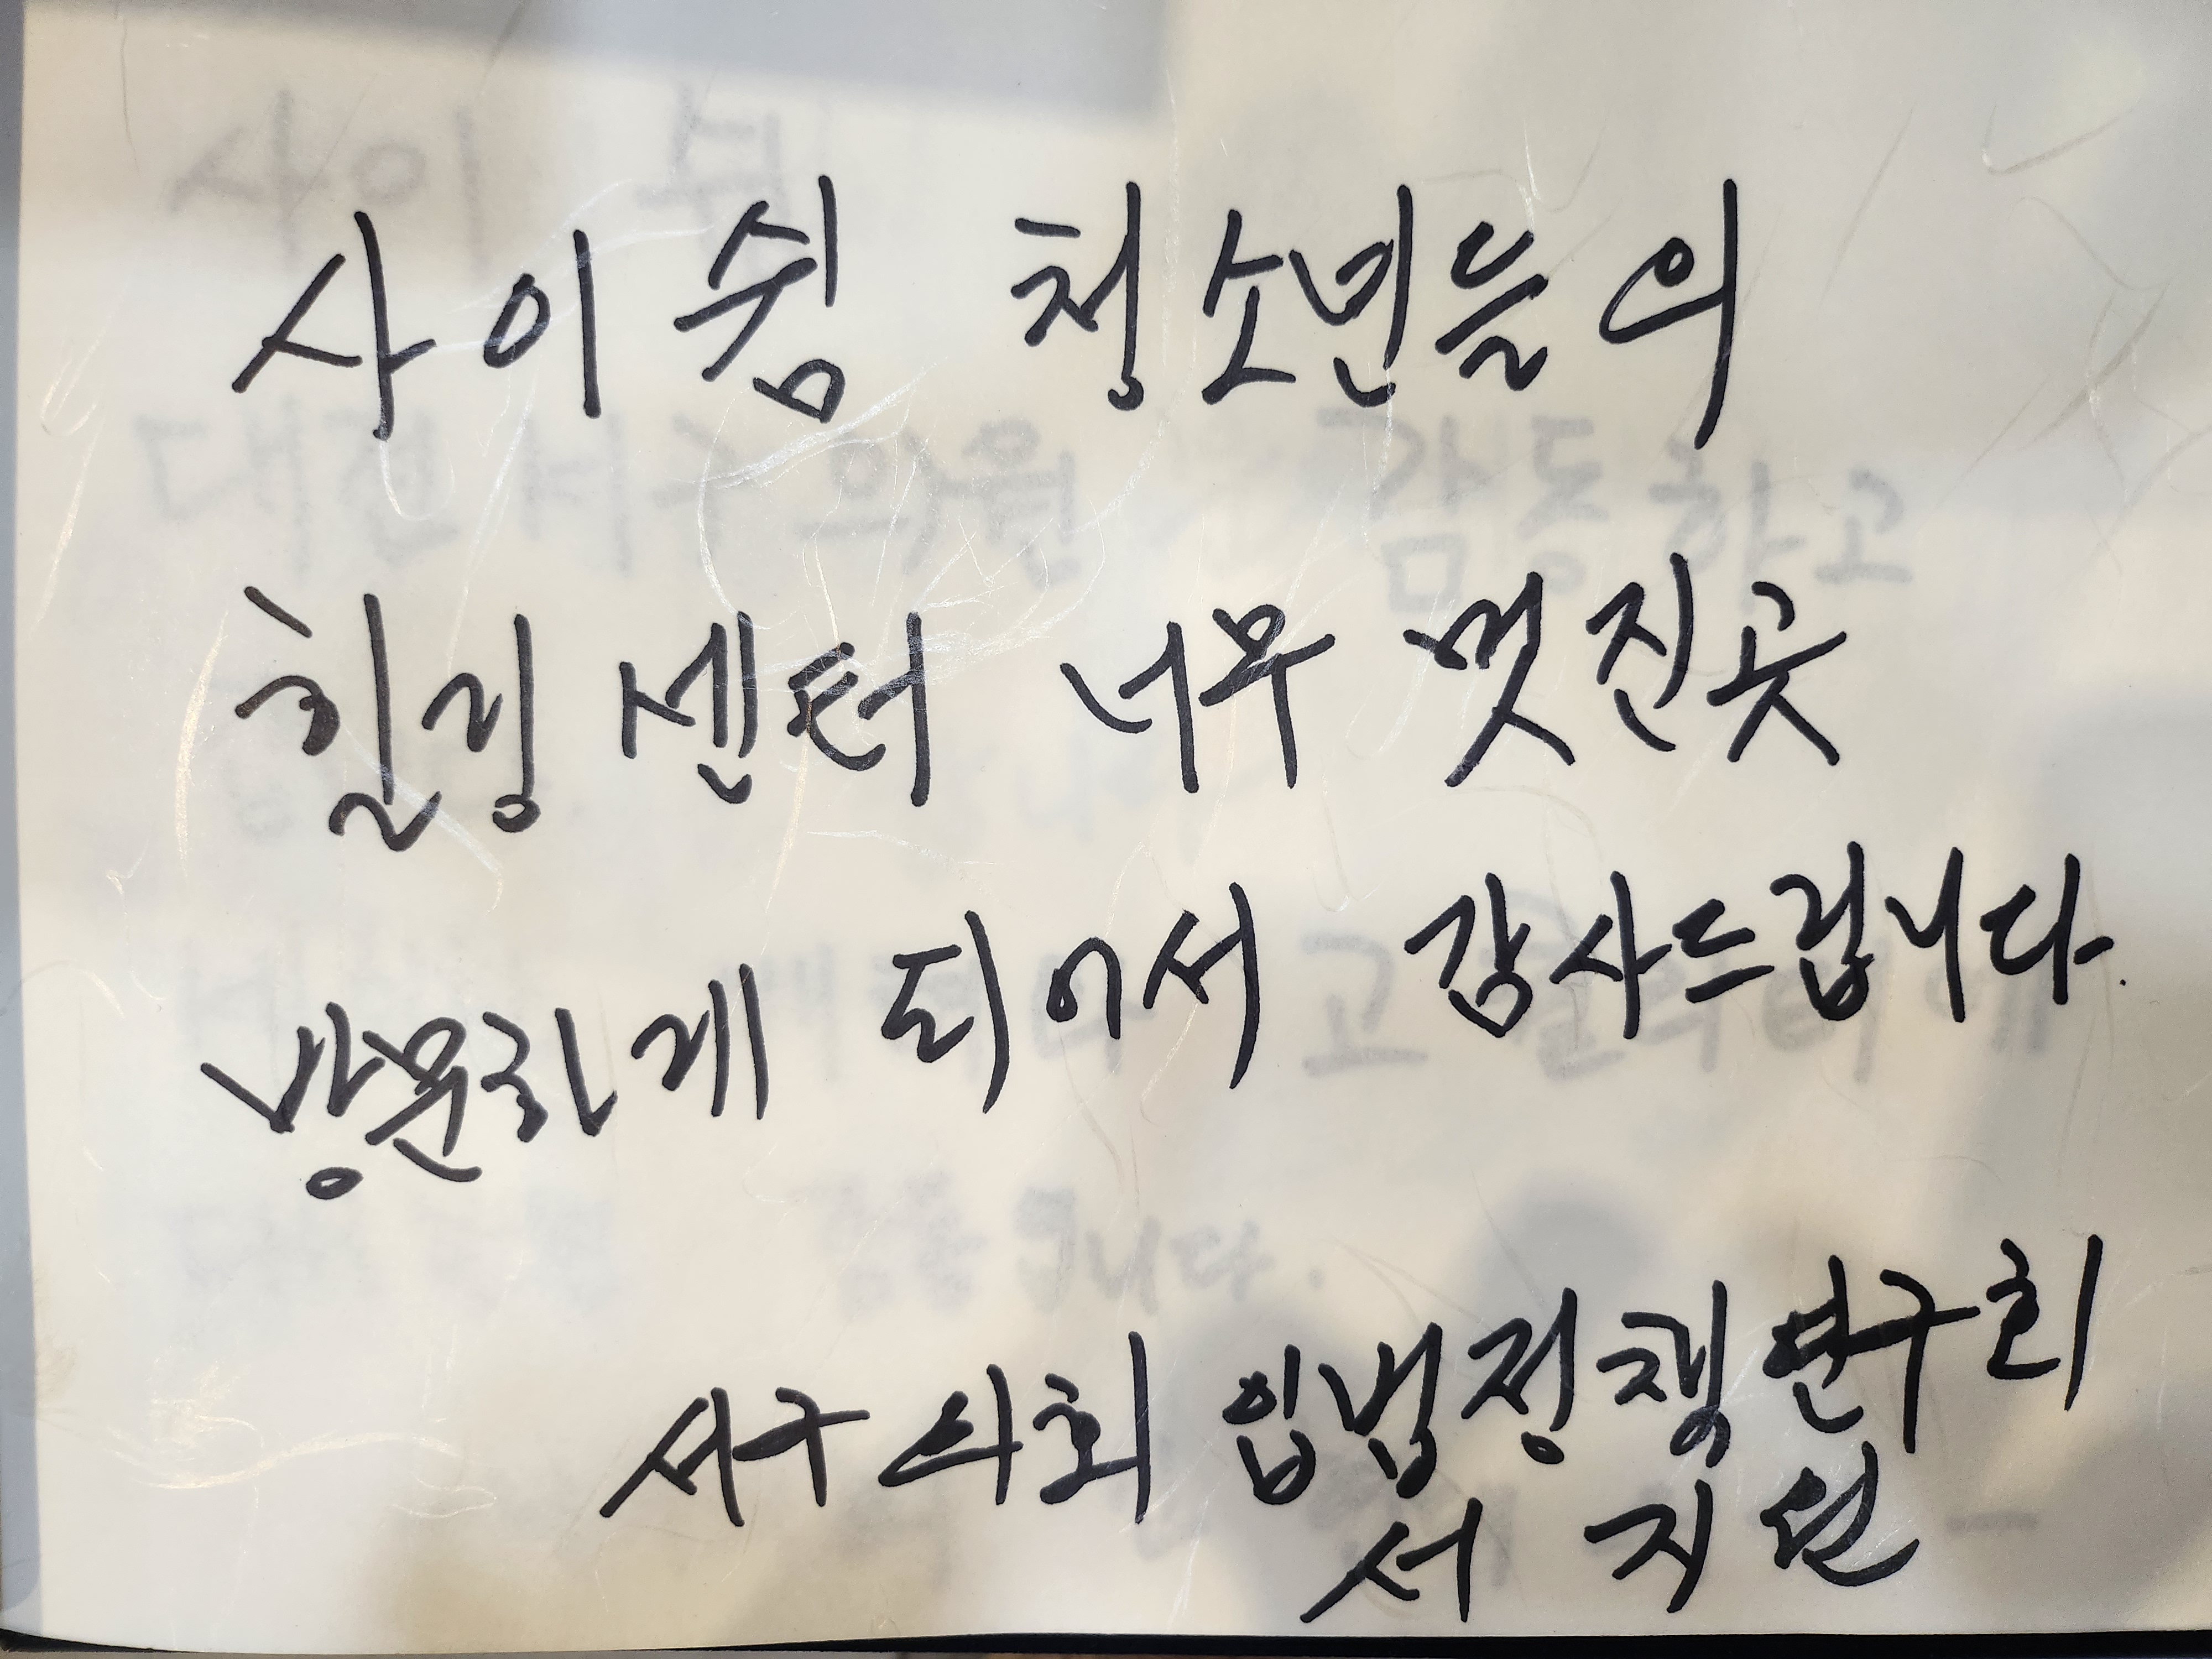 사이쉼 청소년들의
힐링 센터 너무 멋진곳
방문하게 되어서 감사드립니다.
서구의회 입법정책연구회
서지원